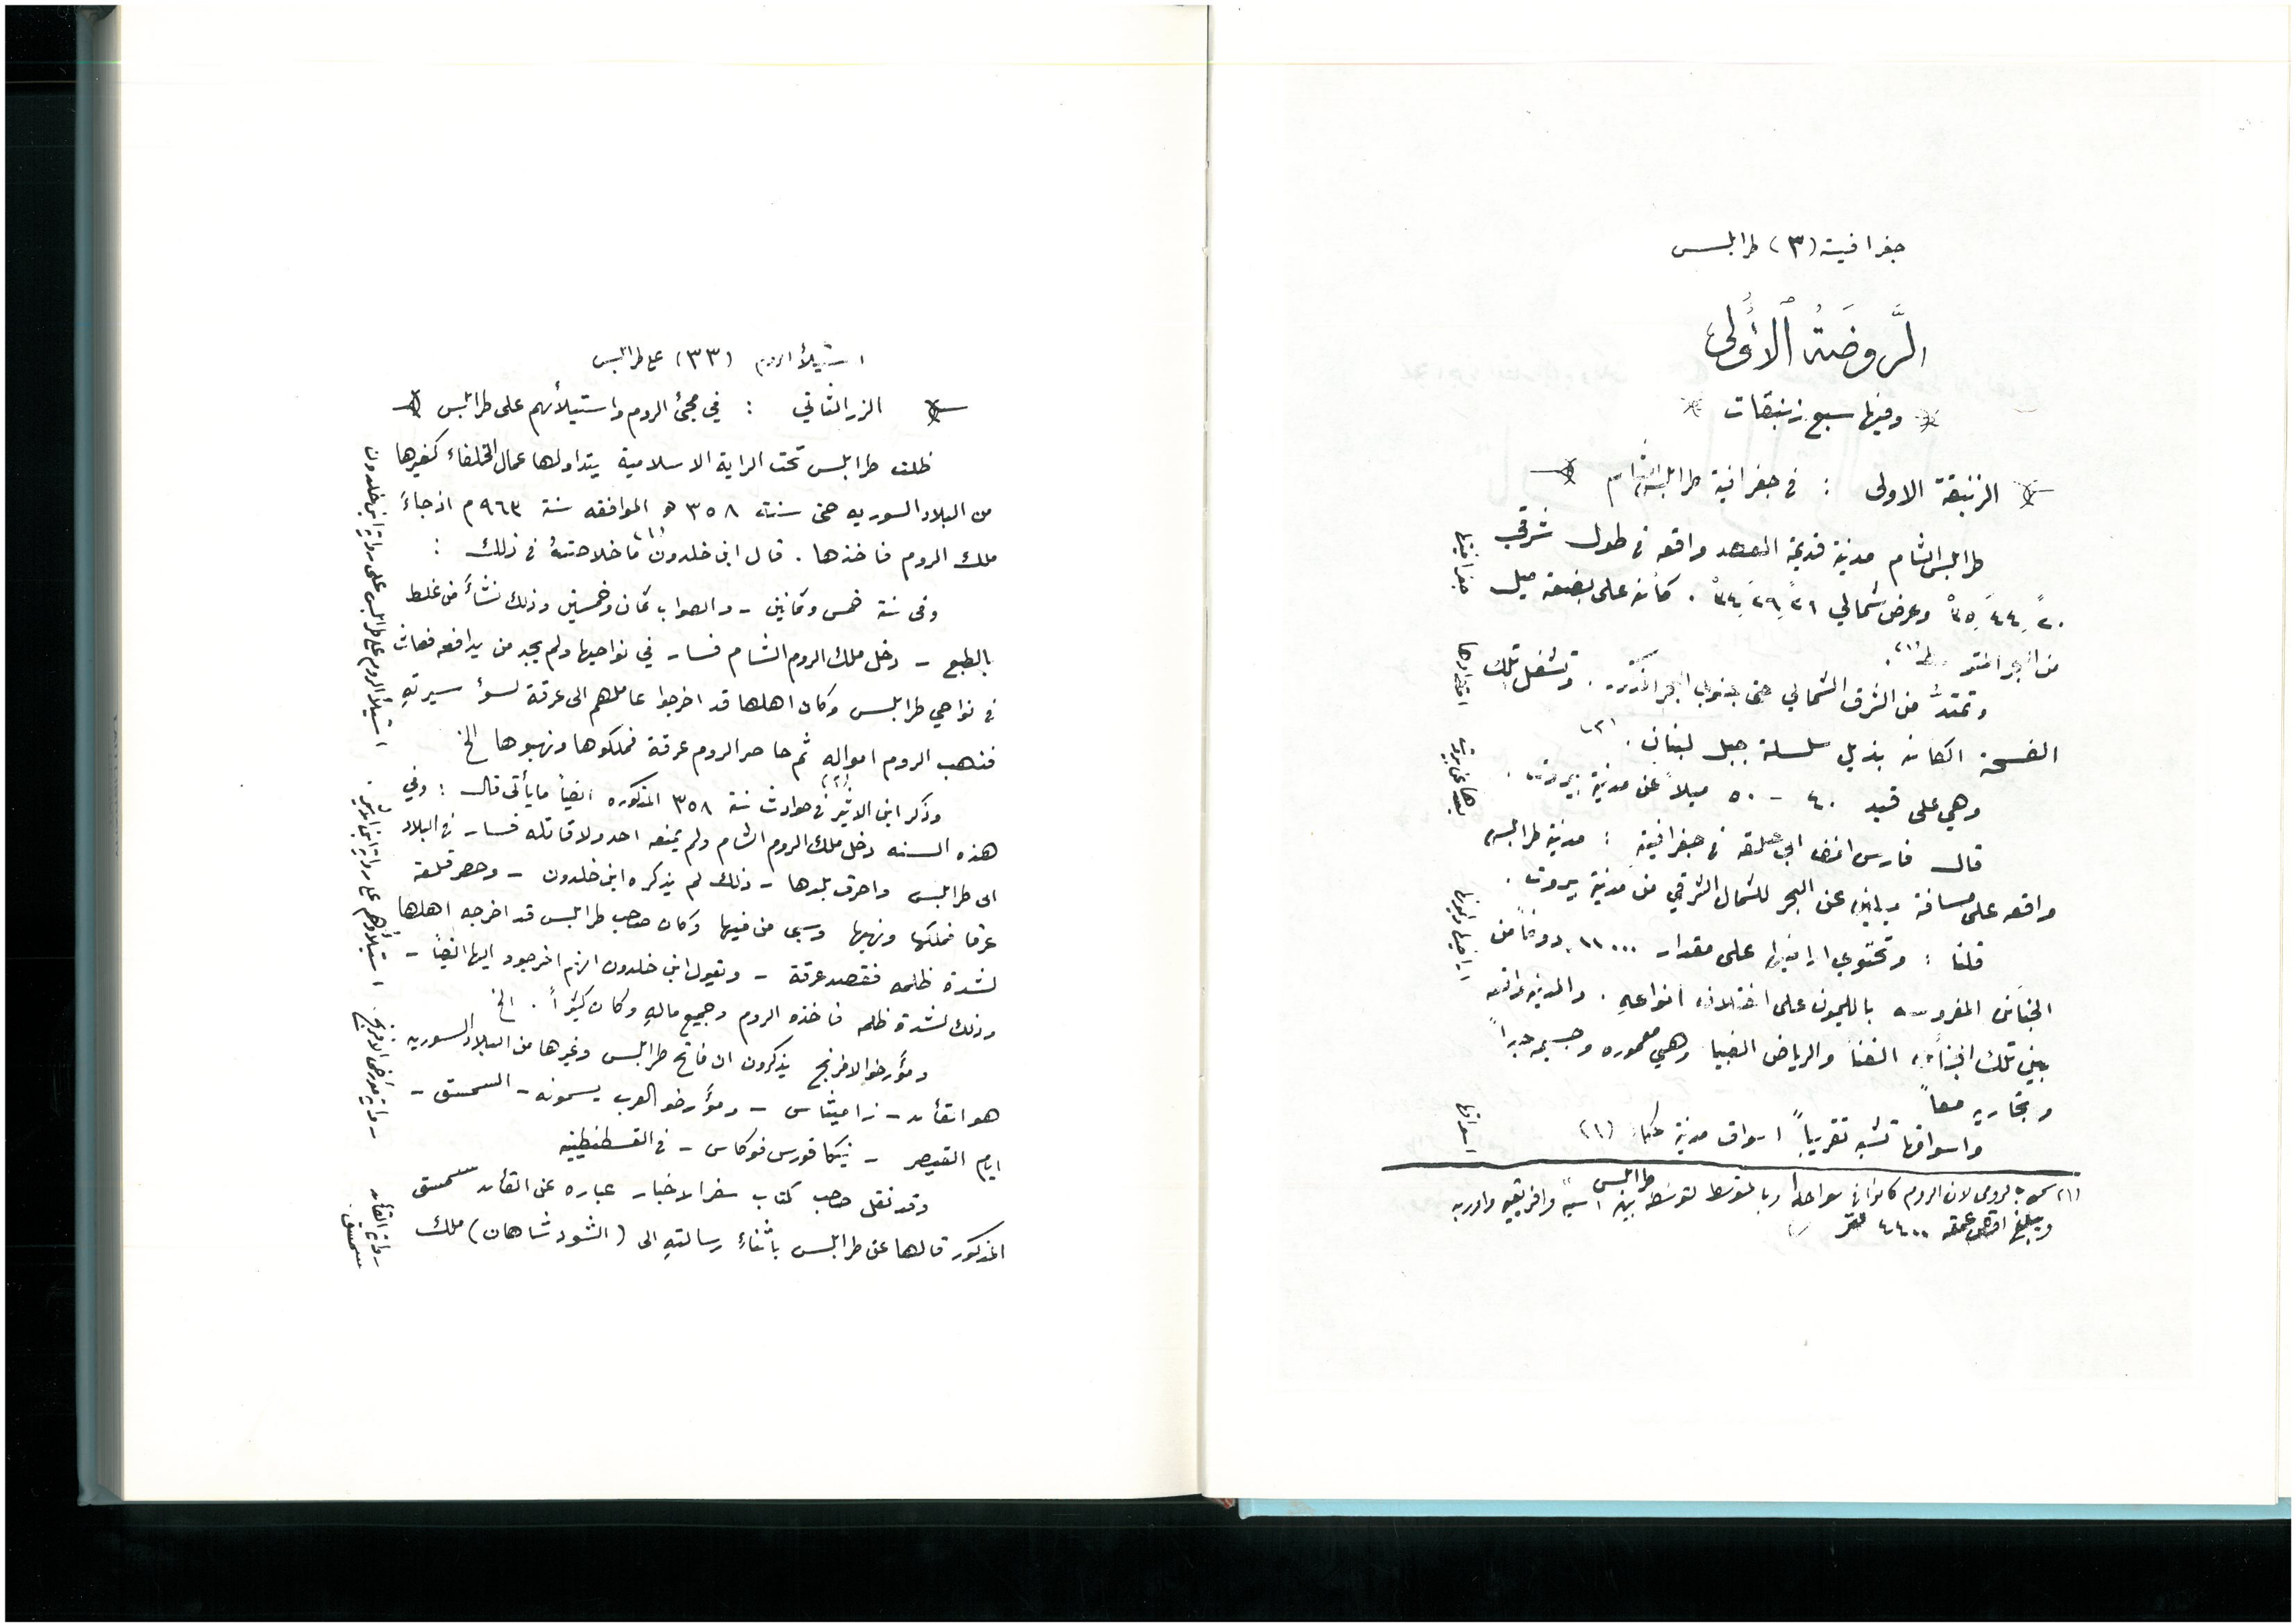 جغرافية (٣) طرابلس
الرَّوضَةُ ٱلأُولىٰ
وفيها سبع زنبقات
الزنبقة الاولى : في جغرافية طرابلس الشام
طرابلس الشام مدينة قديمة العهد واقعه في طول شرقي
٢٠ً ٤٤َ ٣٥ْ وعرض شمالي ٢٦ً ٢٩َ ٣٤ْ . كائنه على بضعة ميل
من البحر المتوسط (١).
وتمتدُّ من الشرق الشمالي حتى جنوب البحر المذكور . وتشغل تلك
الفسحة الكائنه بذيل سلسلة جبل لبنان . (٢)
وهي على قيد ٤٠ - ٥٠ ميلاً عن مدينة بيروت .
قال فارس افندي ابي حلقه في جغرافيته : مدينة طرابلس
واقعه على مسافة ميلين عن البحر للشمال الشرقي من مدينة بيروت .
قلنا : وتحتوي اراضيها على مقدار ١١٠٠٠ دونماً من
الجنائن المغروسه بالليمون على اختلاف انواعهِ . والمدينة واقعه
بين تلك الجنائن الغنا والرياض الفيحا وهي معموره وجسيمه جداً
وتجاريه معاً
واسواقها تشبه تقريباً اسواق مدينة عكا (١)
جغرافيتها
امتدادها
بعدها عن بيروت
اراضيها وليمونها
اسواقها
طرابلس
(١) سمي بالرومي لان الروم كانوا في سواحله وبالمتوسط لتوسطه بين اسية وافريقيه واوربه
ويبلغ اقصى عمقه ٤٤٠٠ متر
استيلأ الروم (٣٣) على طرابلس
الزر الثاني : في مجئ الروم واستيلأئهم على طرابلس
ظلت طرابلس تحت الراية الاسلامية يتداولها عمال الخلفاء كغيرها
من البلاد السوريه حتى سنة ٣٥٨ هـ الموافقه سنة ٩٦٣ م اذ جاءَ
ملك الروم فاخذها . قال ابن خلدون (١) ما خلاصتهُ في ذلك :
وفي سنة خمس وثمانين - والصواب ثمان وخمسين وذلك نشأَ من غلط
بالطبع - دخل ملك الروم الشام فسار في نواحيها ولم يجد من يدافعه فعاث
في نواحي طرابلس وكان اهلها قد اخرجوا عاملهم الى عرقة لسؤ سيرتهِ
فنهب الروم اموالهِ ثم حاصر الروم عرقة فملكوها ونهبوها الخ
وذكر ابن الاثير (٢) في حوادث سنة ٣٥٨ المذكوره ايضاً ما يأتي قال : وفي
هذه السنه دخل ملك الروم الشام ولم يمنعه احد ولا قاتله فسار في البلاد
الى طرابلس واحرق بلدها - ذلك لم يذكره ابن خلدون - وحصر قلعة
عرقا فملكها ونهبها وسبى من فيها وكان صاحب طرابلس قد اخرجه اهلها
لشدة ظلمه فقصد عرقة - ويقول ابن خلدون انهم اخرجوه اليها ايضاً -
وذلك لشدة ظلمه فاخذه الروم وجميع مالهِ وكان كثيراً . الخ
ومؤَرخو الافرنج يذكرون ان فاتح طرابلس وغيرها من البلاد السوريه
هو القأئد - زاميثاس - ومؤَرخو العرب يسمونه - السمسق -
ايام القيصر - نيكافورس فوكاس - في القسطنطينيه
وقد نقل صاحب كتاب سفر الاخبار عباره عن القأئد سمسق
المذكور قالها عن طرابلس باثناءِ رسالتهِ الى (الشود شاهان) ملك
استيلأ الروم على طرابلس على رواية ابن خلدون
استيلأؤهم على رواية ابن الاثير .
رواية مؤرخي الافرنج .
رواية القأئد
سمسق .